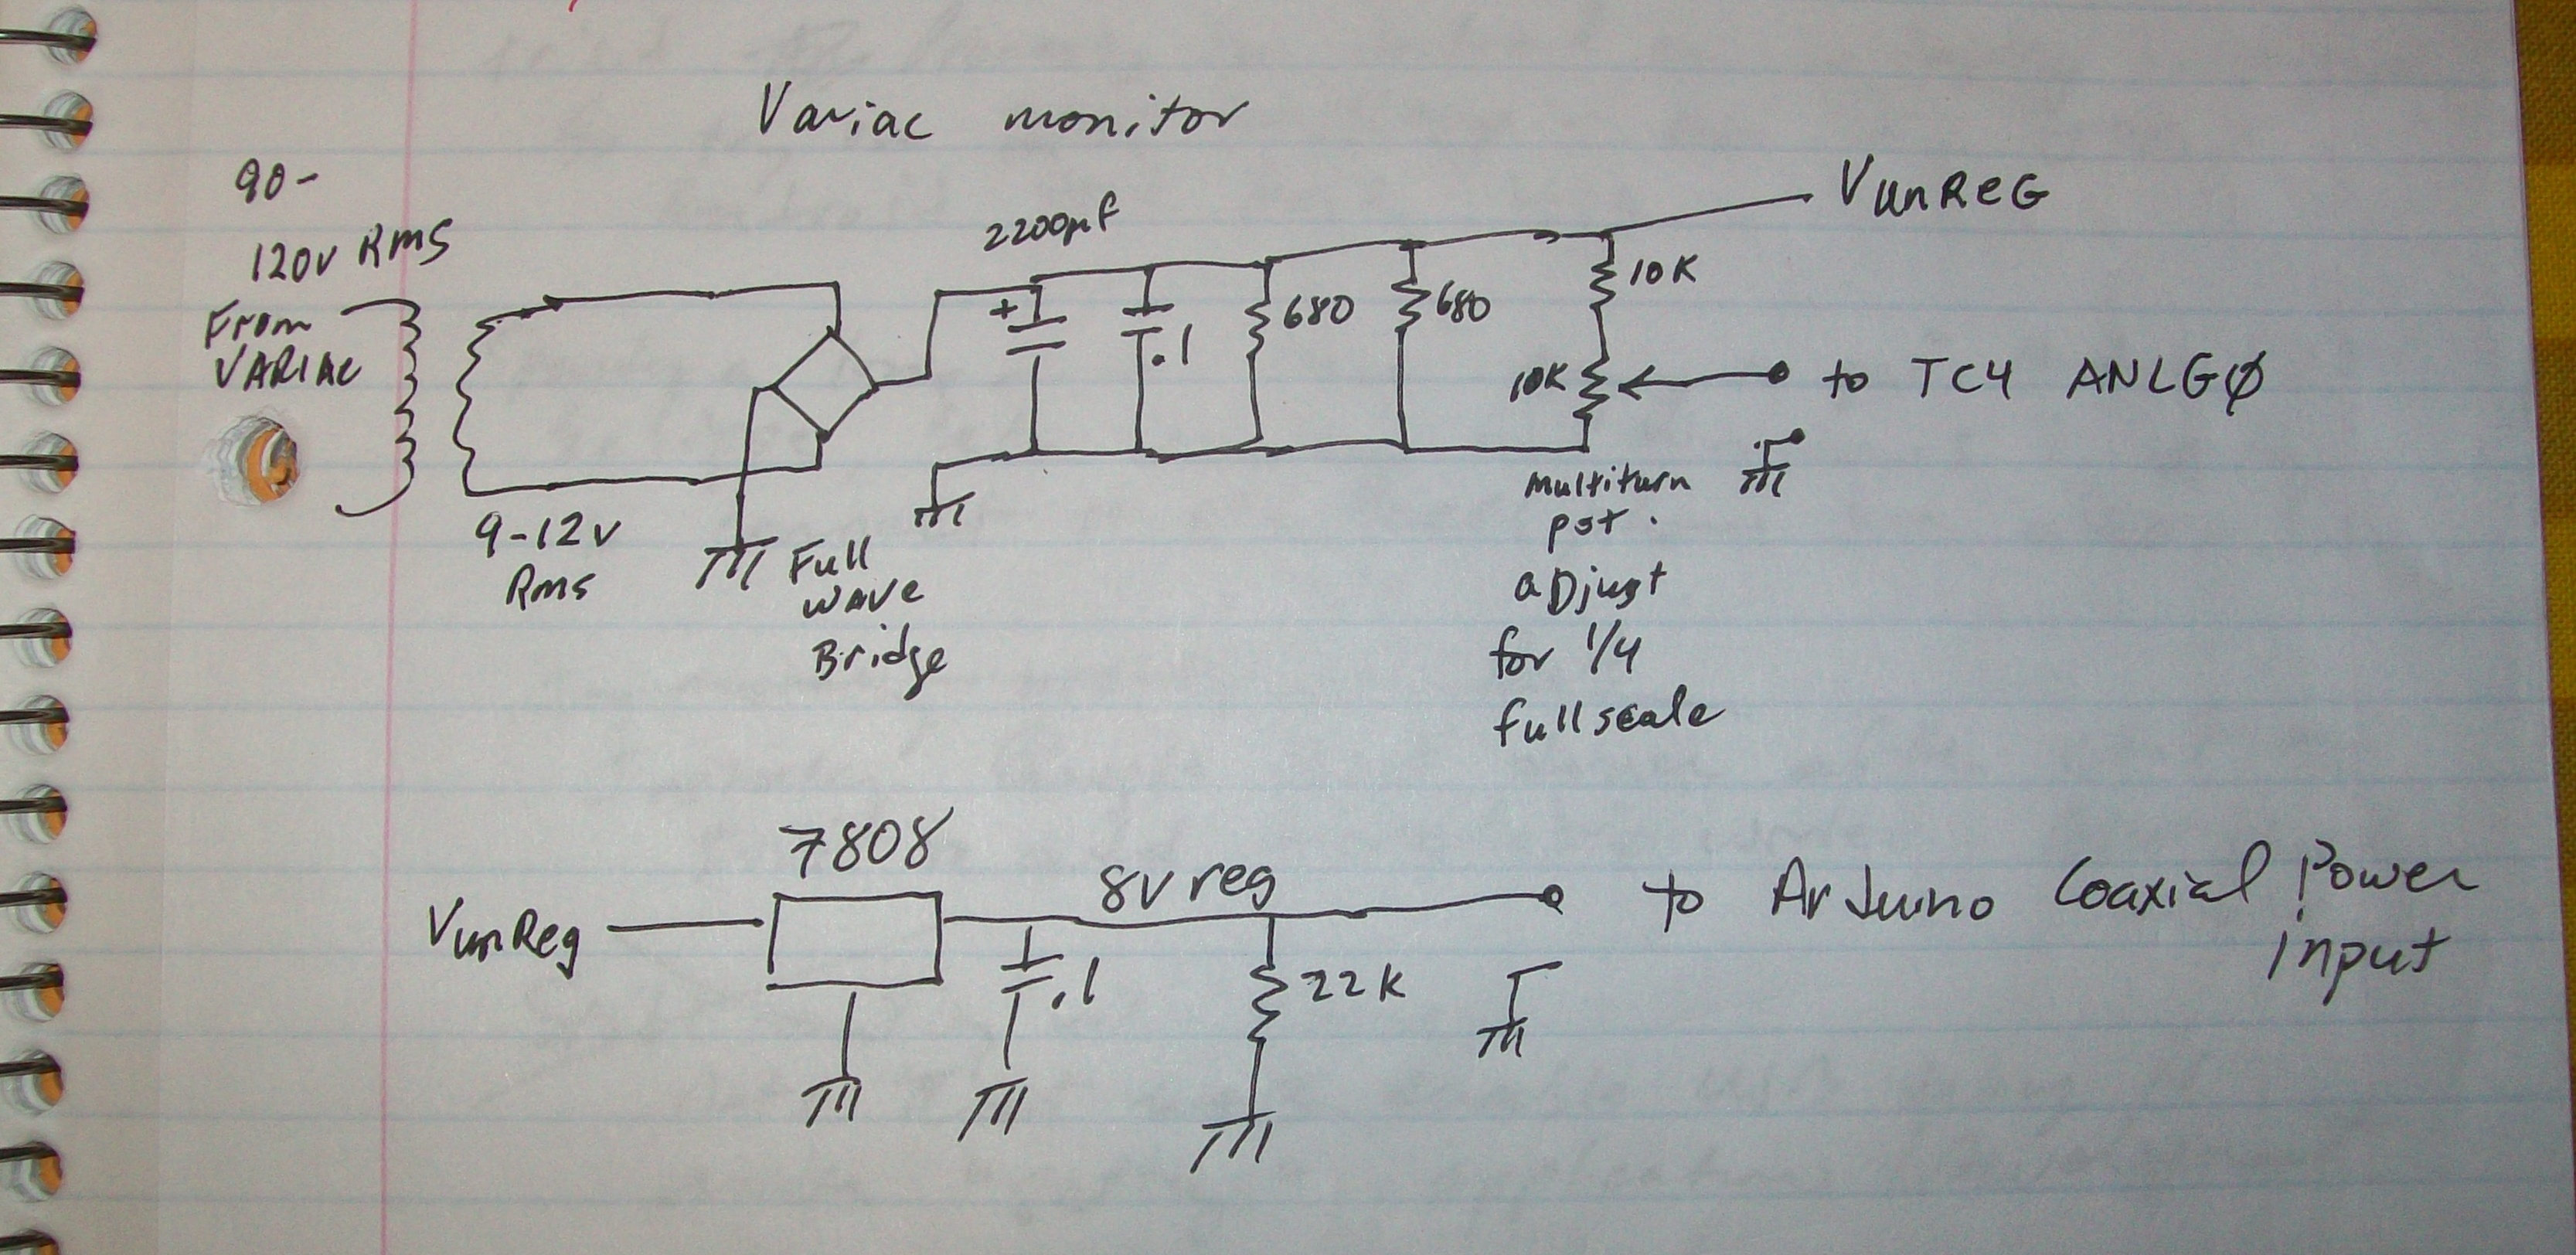 Variac monitor
90-
120v RMS
From
VARIAC
9-12v
Rms
Full
wave
Bridge
2200µf
+
.1
680
680
10K
10K
VunReG
to TC4 ANLGØ
Multiturn
pot.
aDjust
for 1/4
fullscale
7808
VunReg
8v reg
.1
22K
to Arduino Coaxial Power
input